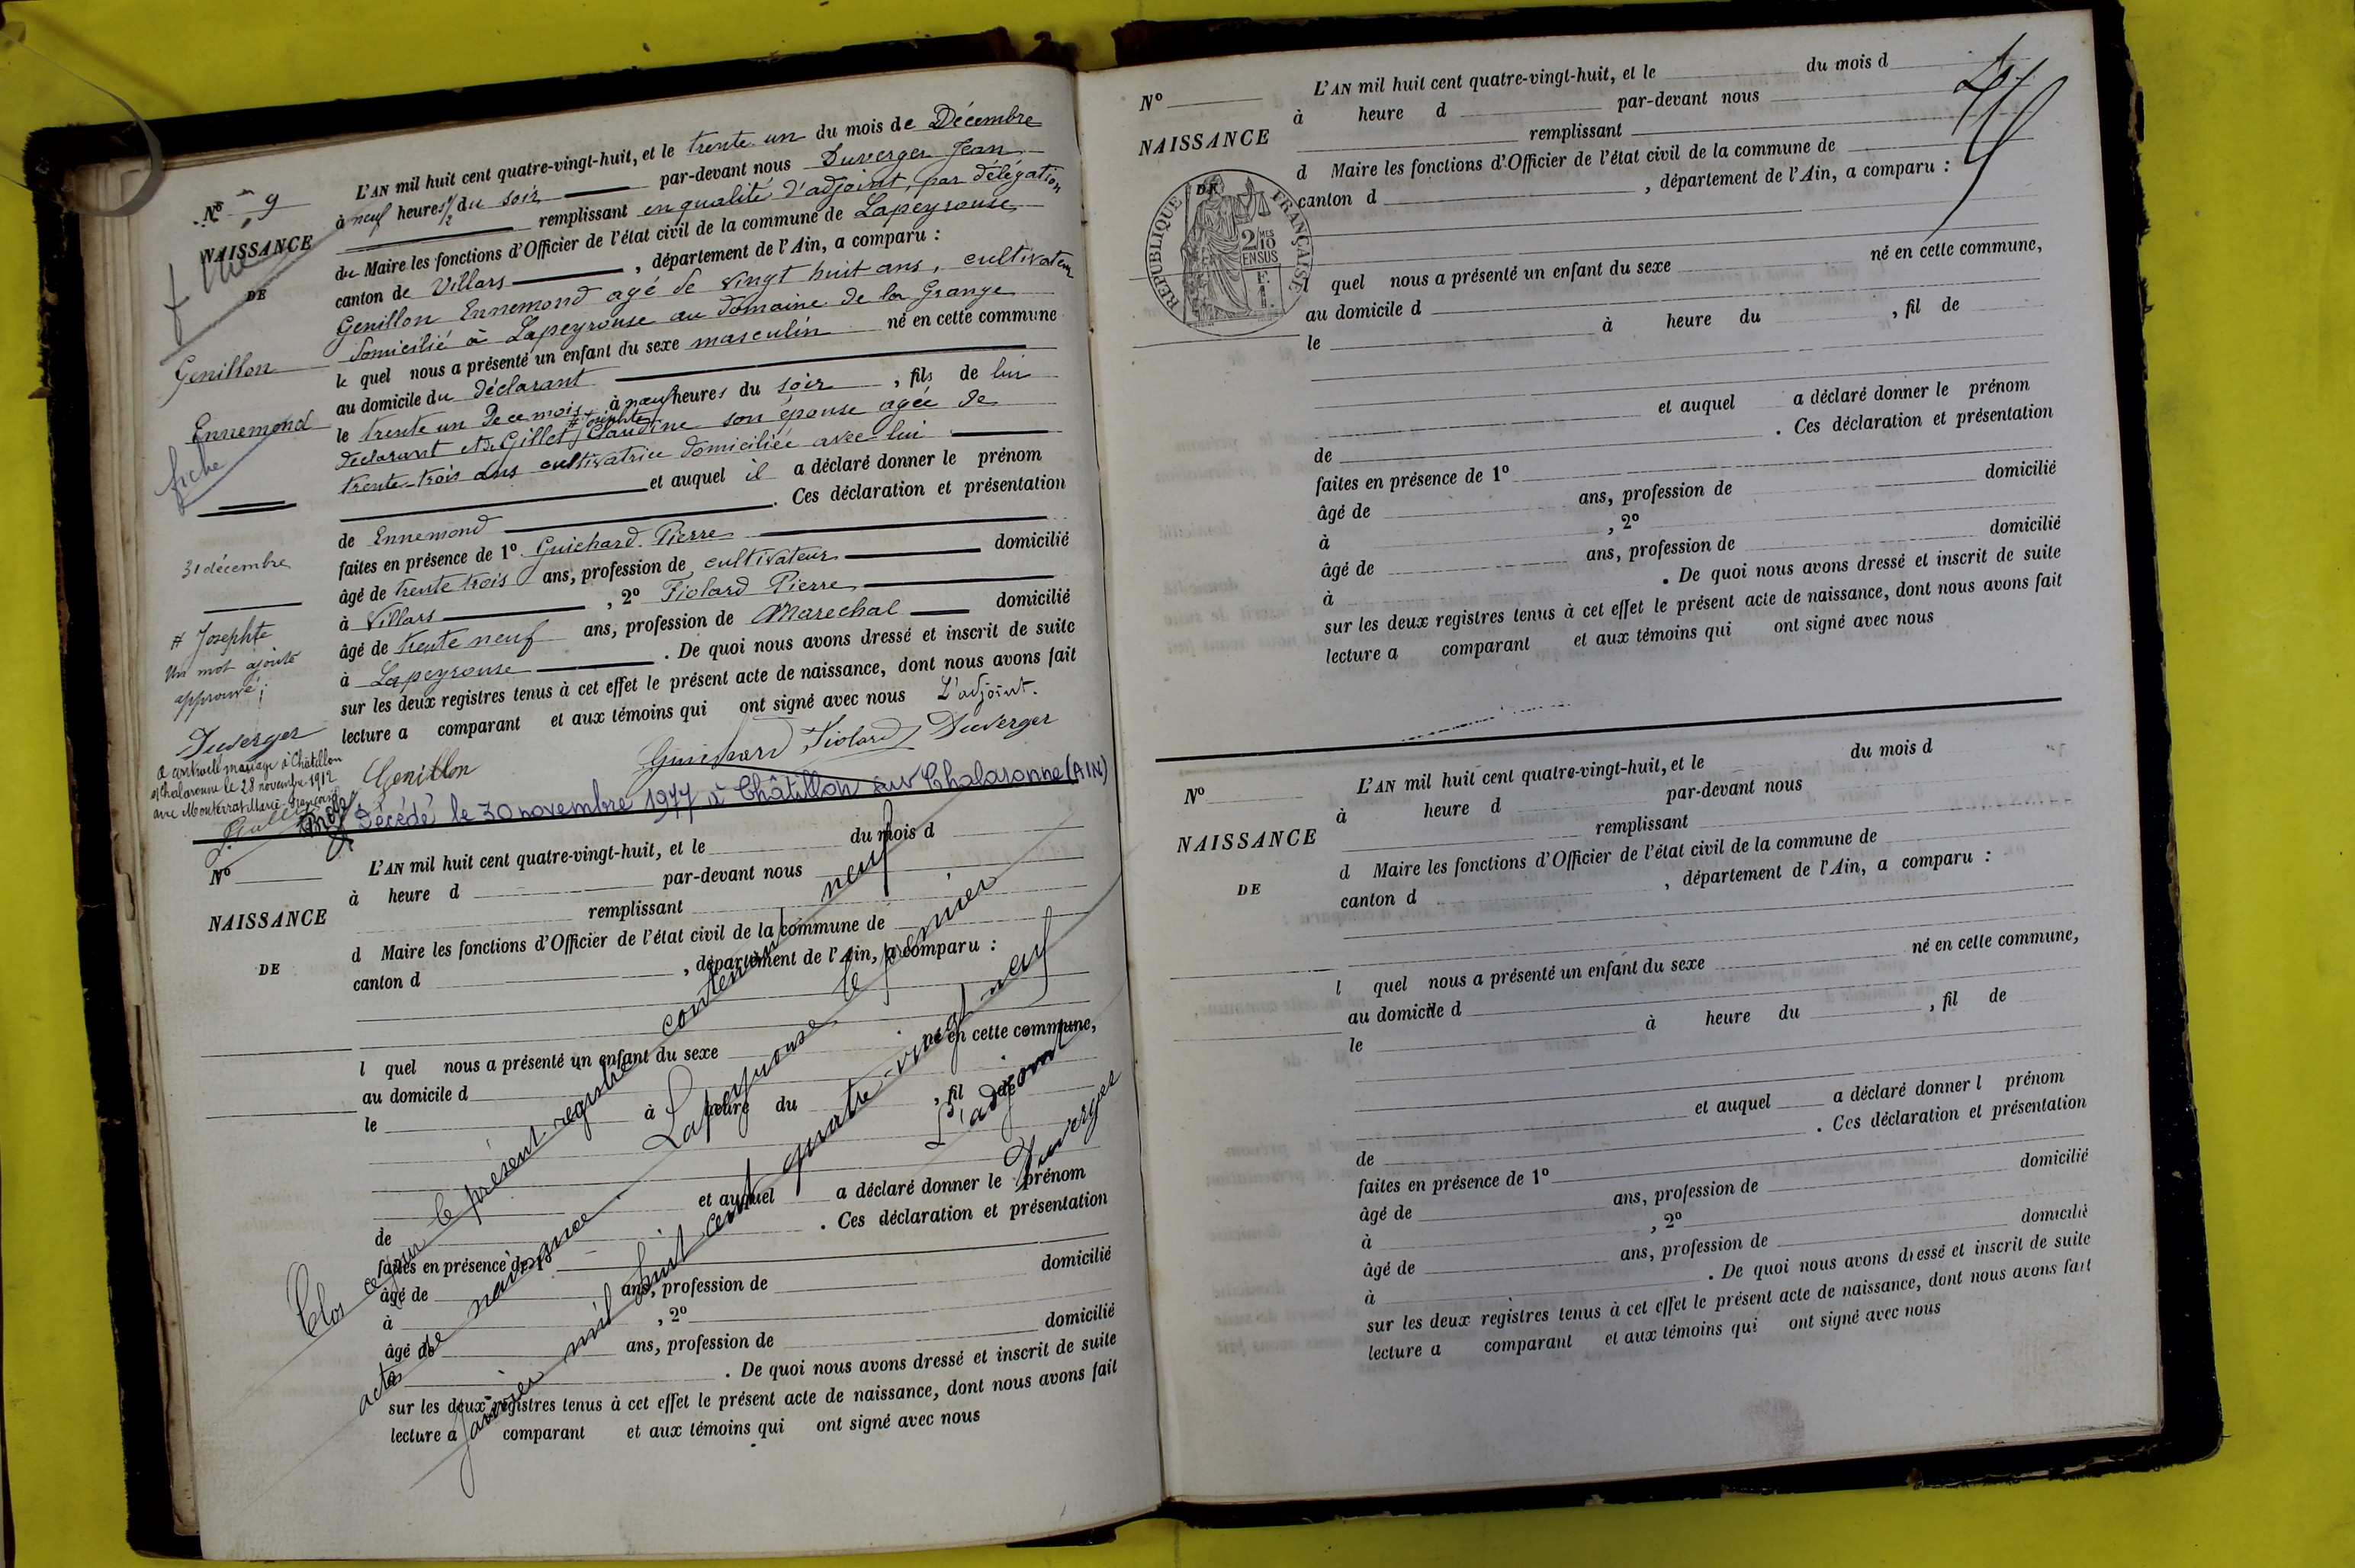 N° 9
NAISSANCE
DE
Genillon
Ennemond
fiche
31 décembre
# Josephte
Un mot ajouté
approuvé
Duverger
a contracté mariage à Châtillon
s/Chalaronne le 28 novembre 1912
avec Monterrat Marie
L'AN mil huit cent quatre-vingt-huit, et le trente un du mois de Décembre
à neuf heures 1/2 du soir par-devant nous Duverger Jean
remplissant en qualité d'adjoint, par délégation
du Maire les fonctions d'Officier de l'état civil de la commune de Lapeyrouse
canton de Villars, département de l'Ain, a comparu :
Genillon Ennemond agé de vingt huit ans, cultivateur
domicilié à Lapeyrouse au domaine de la Grange
le quel nous a présenté un enfant du sexe masculin né en cette commune
au domicile du déclarant
le trente un de ce mois, à neuf heures du soir, fils de lui
déclarant et de Gillet # Josephte Claudine son épouse agée de
trente-trois ans cultivatrice domiciliée avec lui
et auquel il a déclaré donner le prénom
de Ennemond. Ces déclaration et présentation
faites en présence de 1° Guichard Pierre
âgé de trente trois ans, profession de cultivateur domicilié
à Villars, 2° Fiolard Pierre
âgé de trente neuf ans, profession de Marechal domicilié
à Lapeyrouse. De quoi nous avons dressé et inscrit de suite
sur les deux registres tenus à cet effet le présent acte de naissance, dont nous avons fait
lecture a comparant et aux témoins qui ont signé avec nous L'adjoint.
Genillon Guichard Fiolard Duverger
Décédé le 30 novembre 1977 à Châtillon sur Chalaronne (AIN)
N°
NAISSANCE
DE
L'AN mil huit cent quatre-vingt-huit, et le du mois d
à heure d par-devant nous
remplissant
d Maire les fonctions d'Officier de l'état civil de la commune de
canton d , département de l'Ain, a comparu :
l quel nous a présenté un enfant du sexe né en cette commune,
au domicile d
le à heure du , fil de
et auquel a déclaré donner le prénom
de . Ces déclaration et présentation
faites en présence de 1°
âgé de ans, profession de domicilié
à , 2°
âgé de ans, profession de domicilié
à . De quoi nous avons dressé et inscrit de suite
sur les deux registres tenus à cet effet le présent acte de naissance, dont nous avons fait
lecture a comparant et aux témoins qui ont signé avec nous
Clos ce jour le présent registre contenant neuf
actes de naissance. Lapeyrouse le premier
Janvier mil huit cent quatre-vingt-neuf
L'adjoint
Duverger
N°
NAISSANCE
DE
RÉPUBLIQUE FRANÇAISE
2/10 MES
EN SUS
L'AN mil huit cent quatre-vingt-huit, et le du mois d
à heure d par-devant nous
remplissant
d Maire les fonctions d'Officier de l'état civil de la commune de
canton d , département de l'Ain, a comparu :
l quel nous a présenté un enfant du sexe né en cette commune,
au domicile d
le à heure du , fil de
et auquel a déclaré donner le prénom
de . Ces déclaration et présentation
faites en présence de 1°
âgé de ans, profession de domicilié
à , 2°
âgé de ans, profession de domicilié
à . De quoi nous avons dressé et inscrit de suite
sur les deux registres tenus à cet effet le présent acte de naissance, dont nous avons fait
lecture a comparant et aux témoins qui ont signé avec nous
N°
NAISSANCE
DE
L'AN mil huit cent quatre-vingt-huit, et le du mois d
à heure d par-devant nous
remplissant
d Maire les fonctions d'Officier de l'état civil de la commune de
canton d , département de l'Ain, a comparu :
l quel nous a présenté un enfant du sexe né en cette commune,
au domicile d
le à heure du , fil de
et auquel a déclaré donner l prénom
de . Ces déclaration et présentation
faites en présence de 1°
âgé de ans, profession de domicilié
à , 2°
âgé de ans, profession de domicilié
à . De quoi nous avons dressé et inscrit de suite
sur les deux registres tenus à cet effet le présent acte de naissance, dont nous avons fait
lecture a comparant et aux témoins qui ont signé avec nous